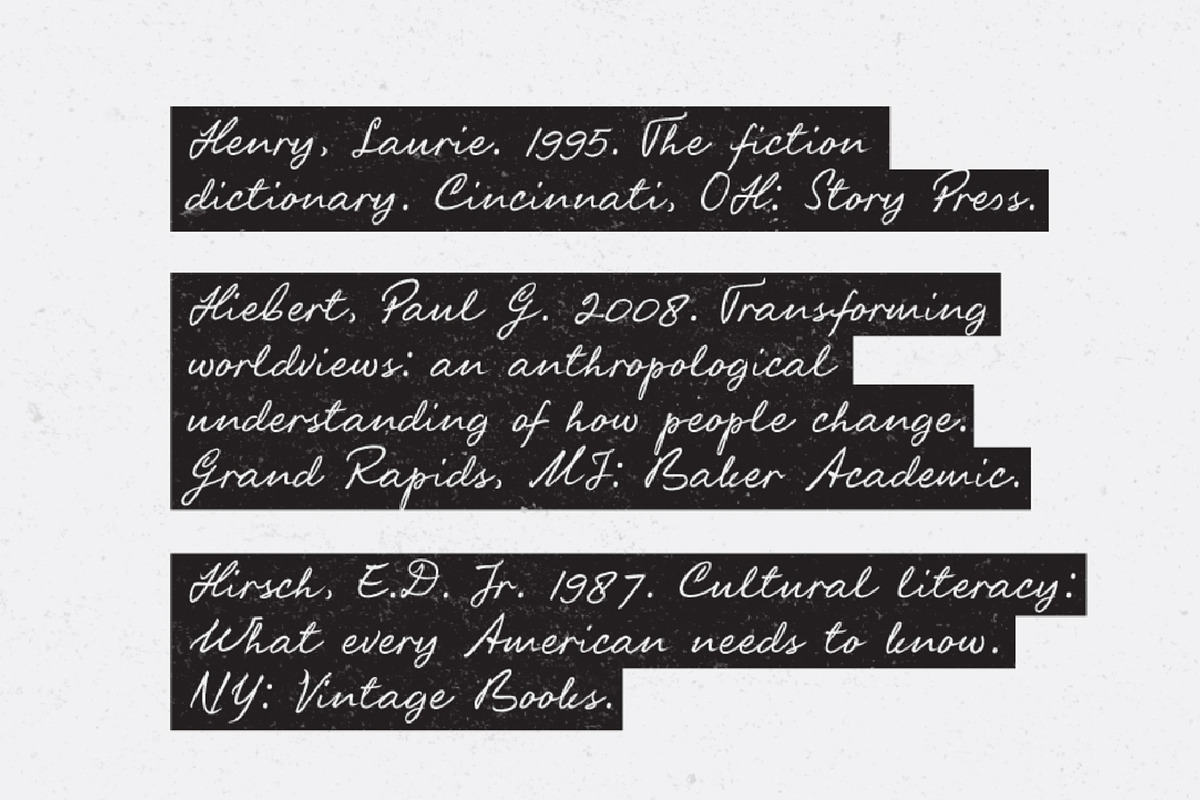 Henry, Laurie. 1995. The fiction
dictionary. Cincinnati, OH: Story Press.
Hiebert, Paul G. 2008. Transforming
worldviews: an anthropological
understanding of how people change.
Grand Rapids, MI: Baker Academic.
Hirsch, E.D. Jr. 1987. Cultural literacy:
What every American needs to know.
NY: Vintage Books.